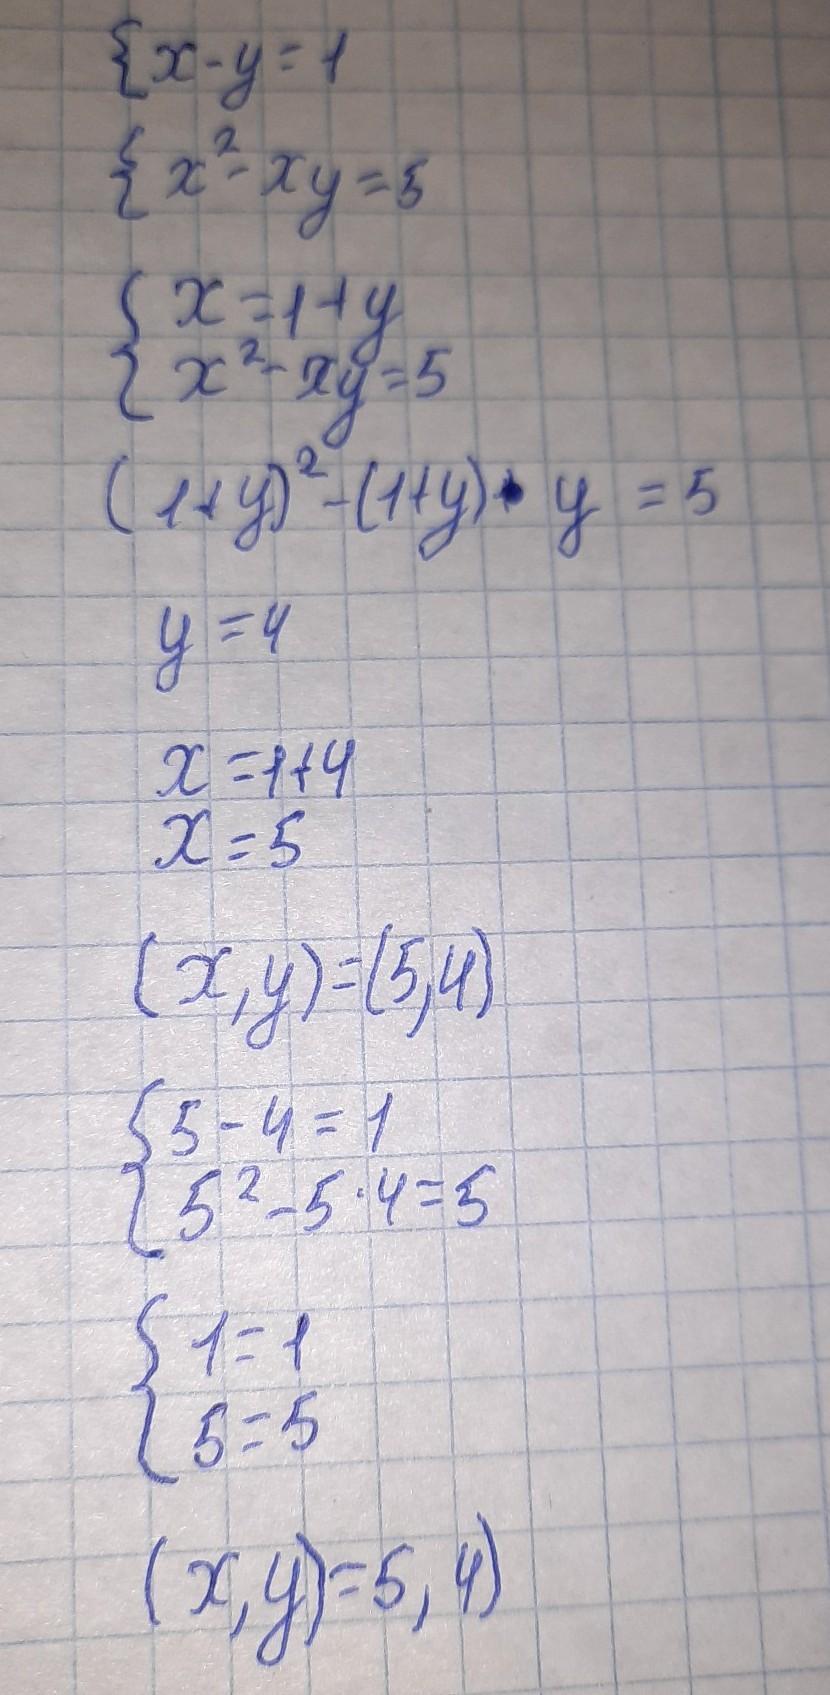 {x-y=1
{x²-xy=5
{x=1+y
x²-xy=5
(1+y)²-(1+y)·y=5
y=4
x=1+4
x=5
(x,y)=(5,4)
{5-4=1
5²-5·4=5
{1=1
5=5
(x,y)=5,4)